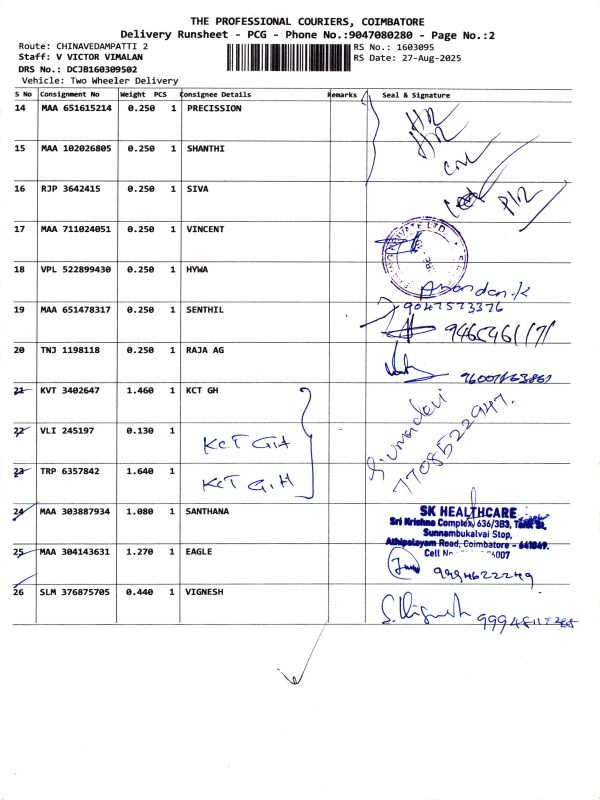 THE PROFESSIONAL COURIERS, COIMBATORE
Delivery Runsheet - PCG - Phone No.:9047080280 - Page No.:2
Route: CHINAVEDAMPATTI 2
RS No.: 1603095
Staff: V VICTOR VIMALAN
RS Date: 27-Aug-2025
DRS No.: DCJB160309502
Vehicle: Two Wheeler Delivery
S No Consignment No Weight PCS Consignee Details Remarks Seal & Signature
14 MAA 651615214 0.250 1 PRECISSION
15 MAA 102026805 0.250 1 SHANTHI
16 RJP 3642415 0.250 1 SIVA
17 MAA 711024051 0.250 1 VINCENT
18 VPL 522899430 0.250 1 HYWA
Anandan.k
19 MAA 651478317 0.250 1 SENTHIL
20 TNJ 1198118 0.250 1 RAJA AG
21 KVT 3402647 1.460 1 KCT GH
22 VLI 245197 0.130 1 KCT GH
23 TRP 6357842 1.640 1 KCT G.H
7708522947.
24 MAA 303887934 1.080 1 SANTHANA
SK HEALTHCARE
Sri Krishna Complex, 636/3B3, Tank St,
Sunnambukalvai Stop,
Athipalayam Road, Coimbatore - 641049.
Cell No
25 MAA 304143631 1.270 1 EAGLE
9994622249
26 SLM 376875705 0.440 1 VIGNESH
S. Vignesh